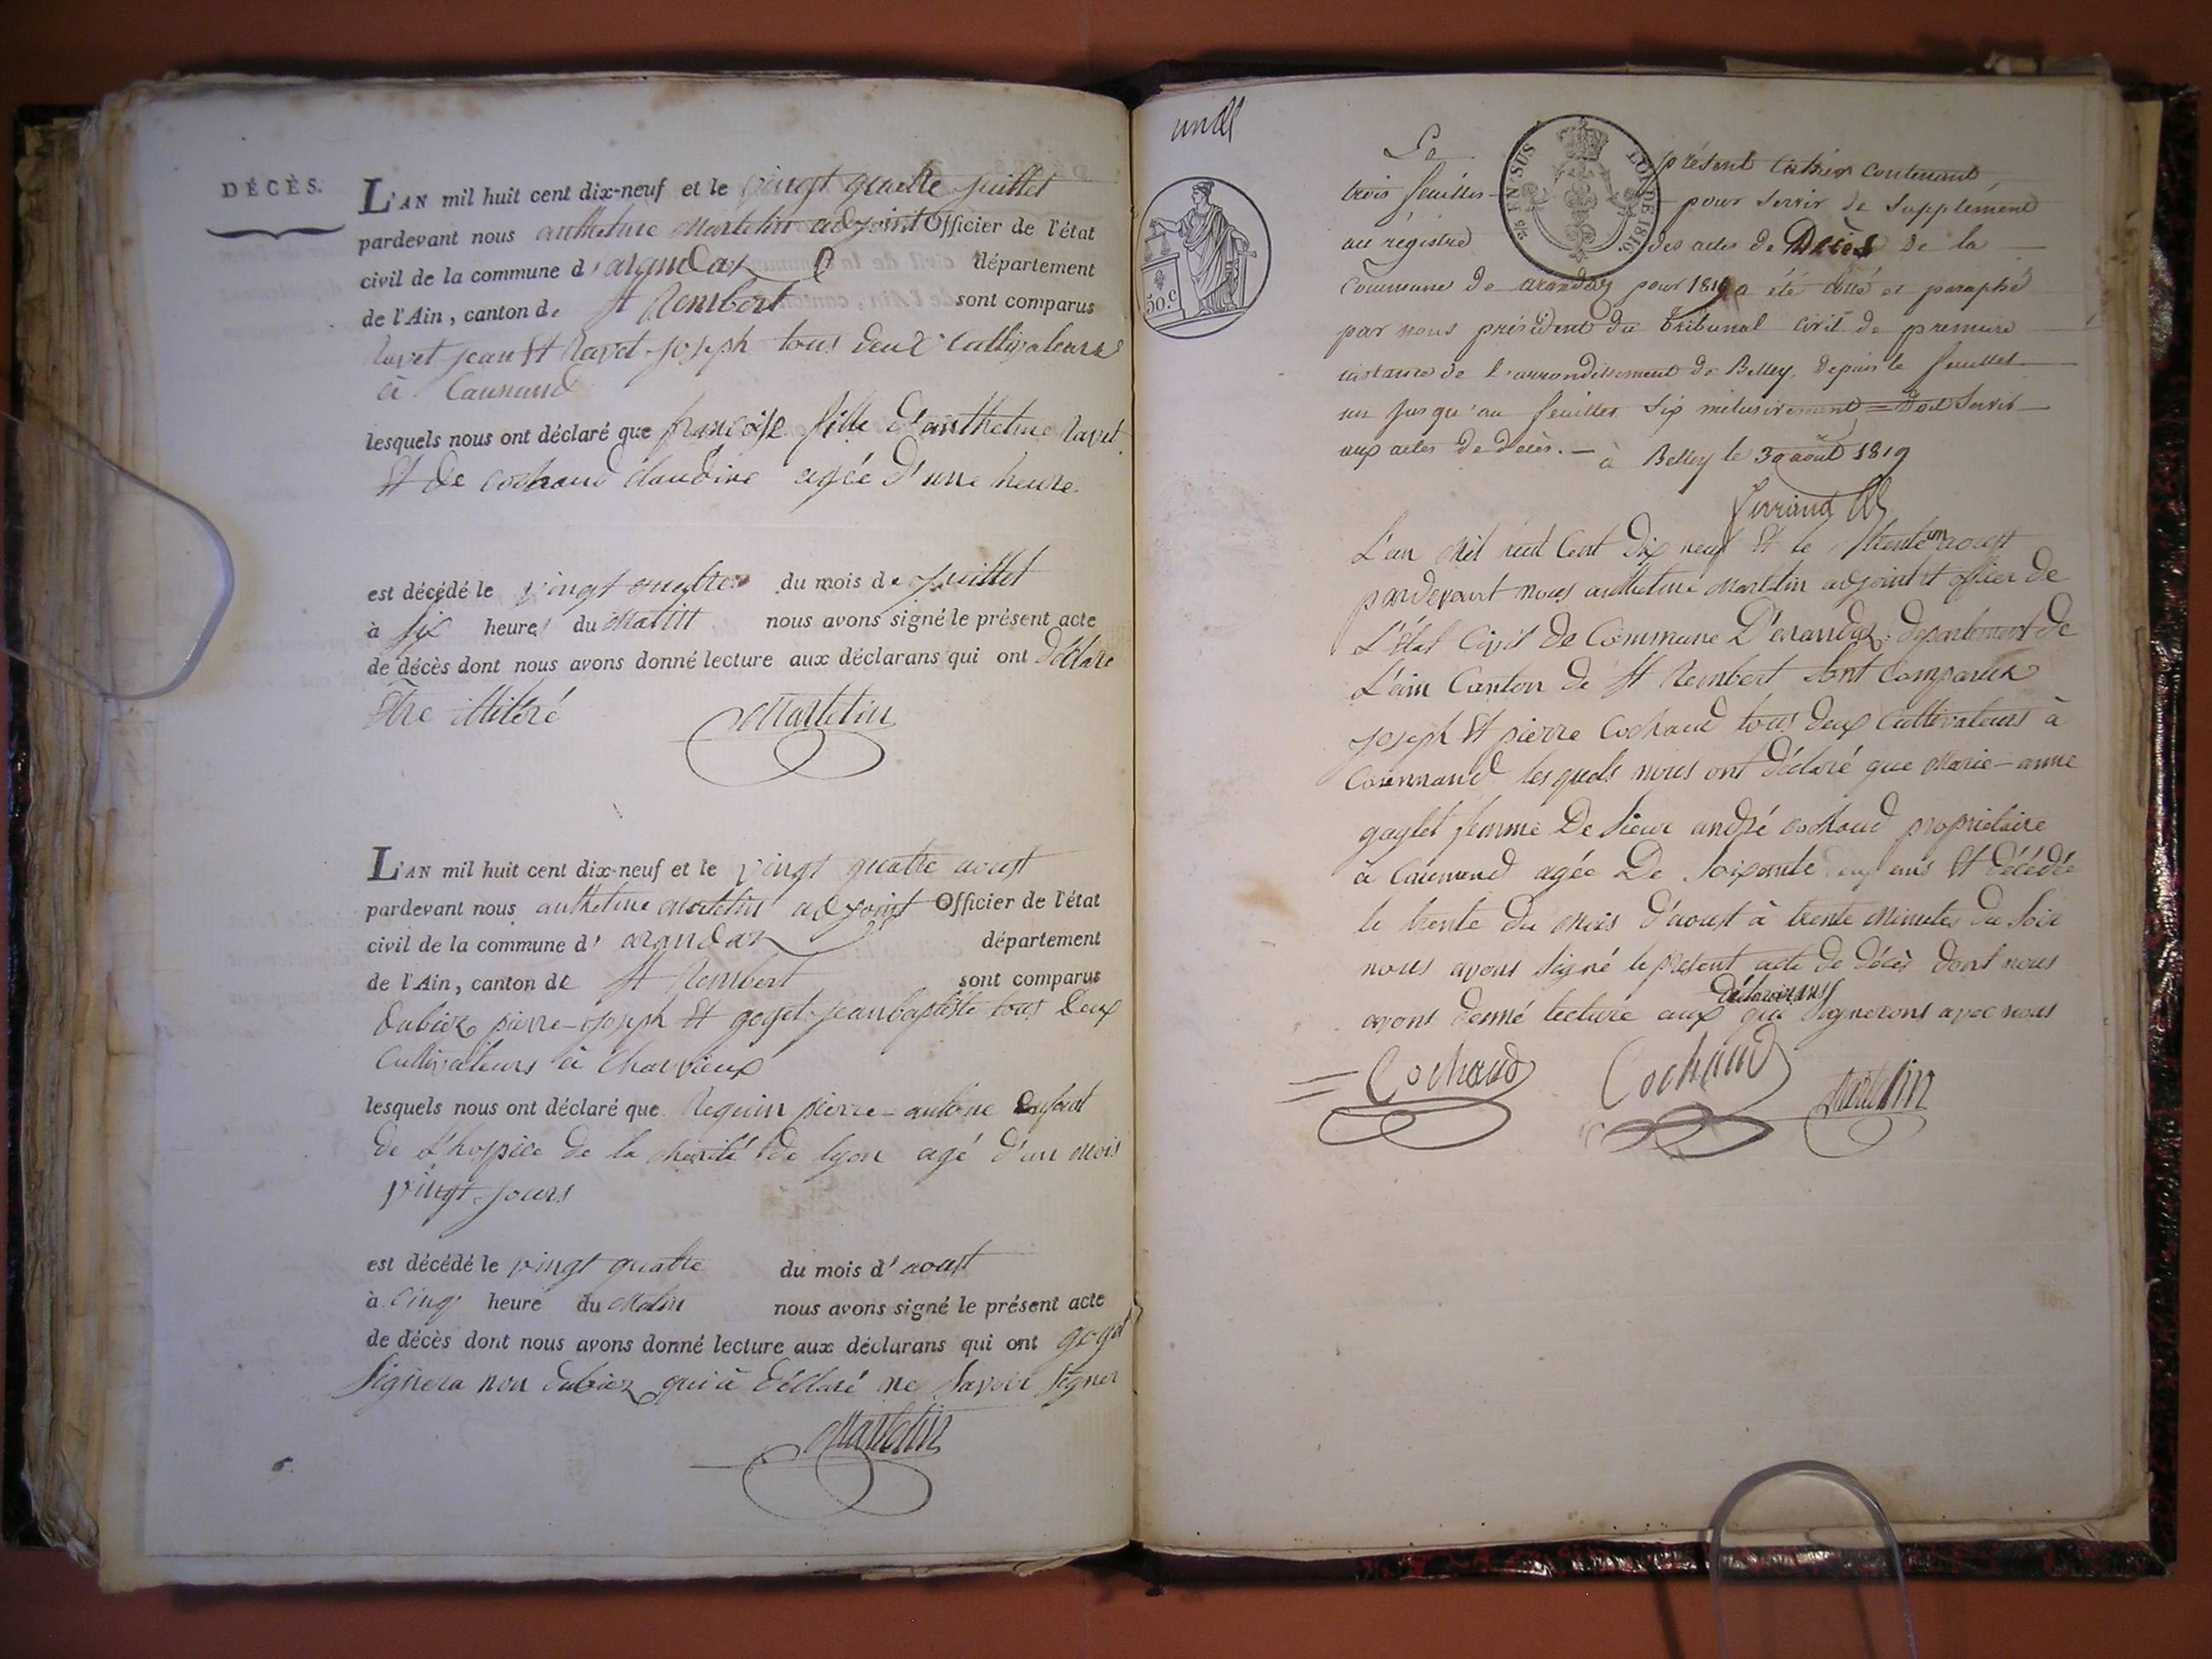 DÉCÈS.
L'AN mil huit cent dix-neuf et le vingt quatre juillet
pardevant nous anthelme Martelin adjoint Officier de l'état
civil de la commune d'arandaz département
de l'Ain, canton de St Rembert sont comparus
ravet jean et Ravet joseph tous deux Cultivateurs
à Caunand
lesquels nous ont déclaré que françoise fille d'anthelme ravet
et de cochaud Claudine agée d'une heure
est décédé le vingt quatre du mois de juillet
à six heures du Matin nous avons signé le présent acte
de décès dont nous avons donné lecture aux déclarans qui ont déclaré
être illitéré
Martelin
L'AN mil huit cent dix-neuf et le vingt quatre aoust
pardevant nous anthelme Martelin adjoint Officier de l'état
civil de la commune d'arandaz département
de l'Ain, canton de St Rembert sont comparus
Dubiez pierre-joseph et goyet jean baptiste tous deux
Cultivateurs à Charvieux
lesquels nous ont déclaré que Requin pierre-antoine Enfant
de L'hospice de la charité de lyon agé d'un mois
vingt jours
est décédé le vingt quatre du mois d'aoust
à Cinq heure du Matin nous avons signé le présent acte
de décès dont nous avons donné lecture aux déclarans qui ont goyet
Signera non dubiez qui à déclaré ne Savoir Signer
Martelin
50.c
2/6 EN SUS
LOI DE 1816
Le présent Cahier contenant
trois feuilles pour servir de Supplement
au régistre des actes de Décès de la
Commune de arandaz pour 1819 a été côté et paraphé
par nous président du tribunal civil de premiere
instance de l'arrondissement de Belley, depuis le feuillet
un jusqu'au feuillet six inclusivement = doit Servir
aux actes de Décès. — à Belley le 30 août 1819
L'an Mil huit Cent dix neuf et le trente un aoust
pardevant nous anthelme Martelin adjoint et officier de
L'état Civil de Commune D'arandaz département de
L'ain Canton de St Rembert sont Comparus
joseph et pierre Cochaud tous deux Cultivateurs à
Caunnand lesquels nous ont déclaré que Marie-anne
goyet femme De Sieur andré cochaud propriétaire
à Caunnand agée De Soixante ans et décédée
le trente du Mois d'aoust à trente Minutes du Soir
nous avons Signé le présent acte de décès dont nous
avons donné lecture aux déclarans qui Signerons avec nous
Cochaud Cochaud Martelin